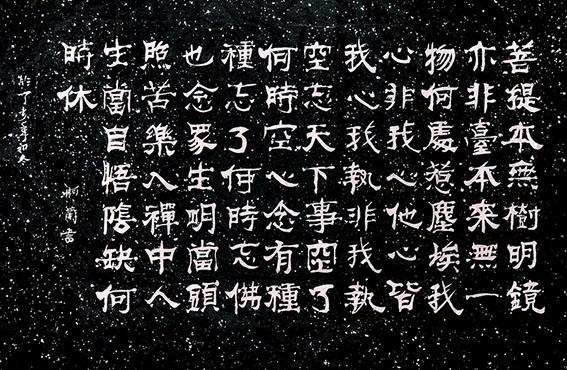 菩提本無樹明鏡
亦非臺本來無一
物何處惹塵埃我
心非我心他心皆
我心我執非我執
空忘天下事空了
何時空心念有種
種忘了何時忘佛
也念眾生明當頭
照苦樂入禪中人
生當自悟陰缺何
時休
於丁亥年初冬